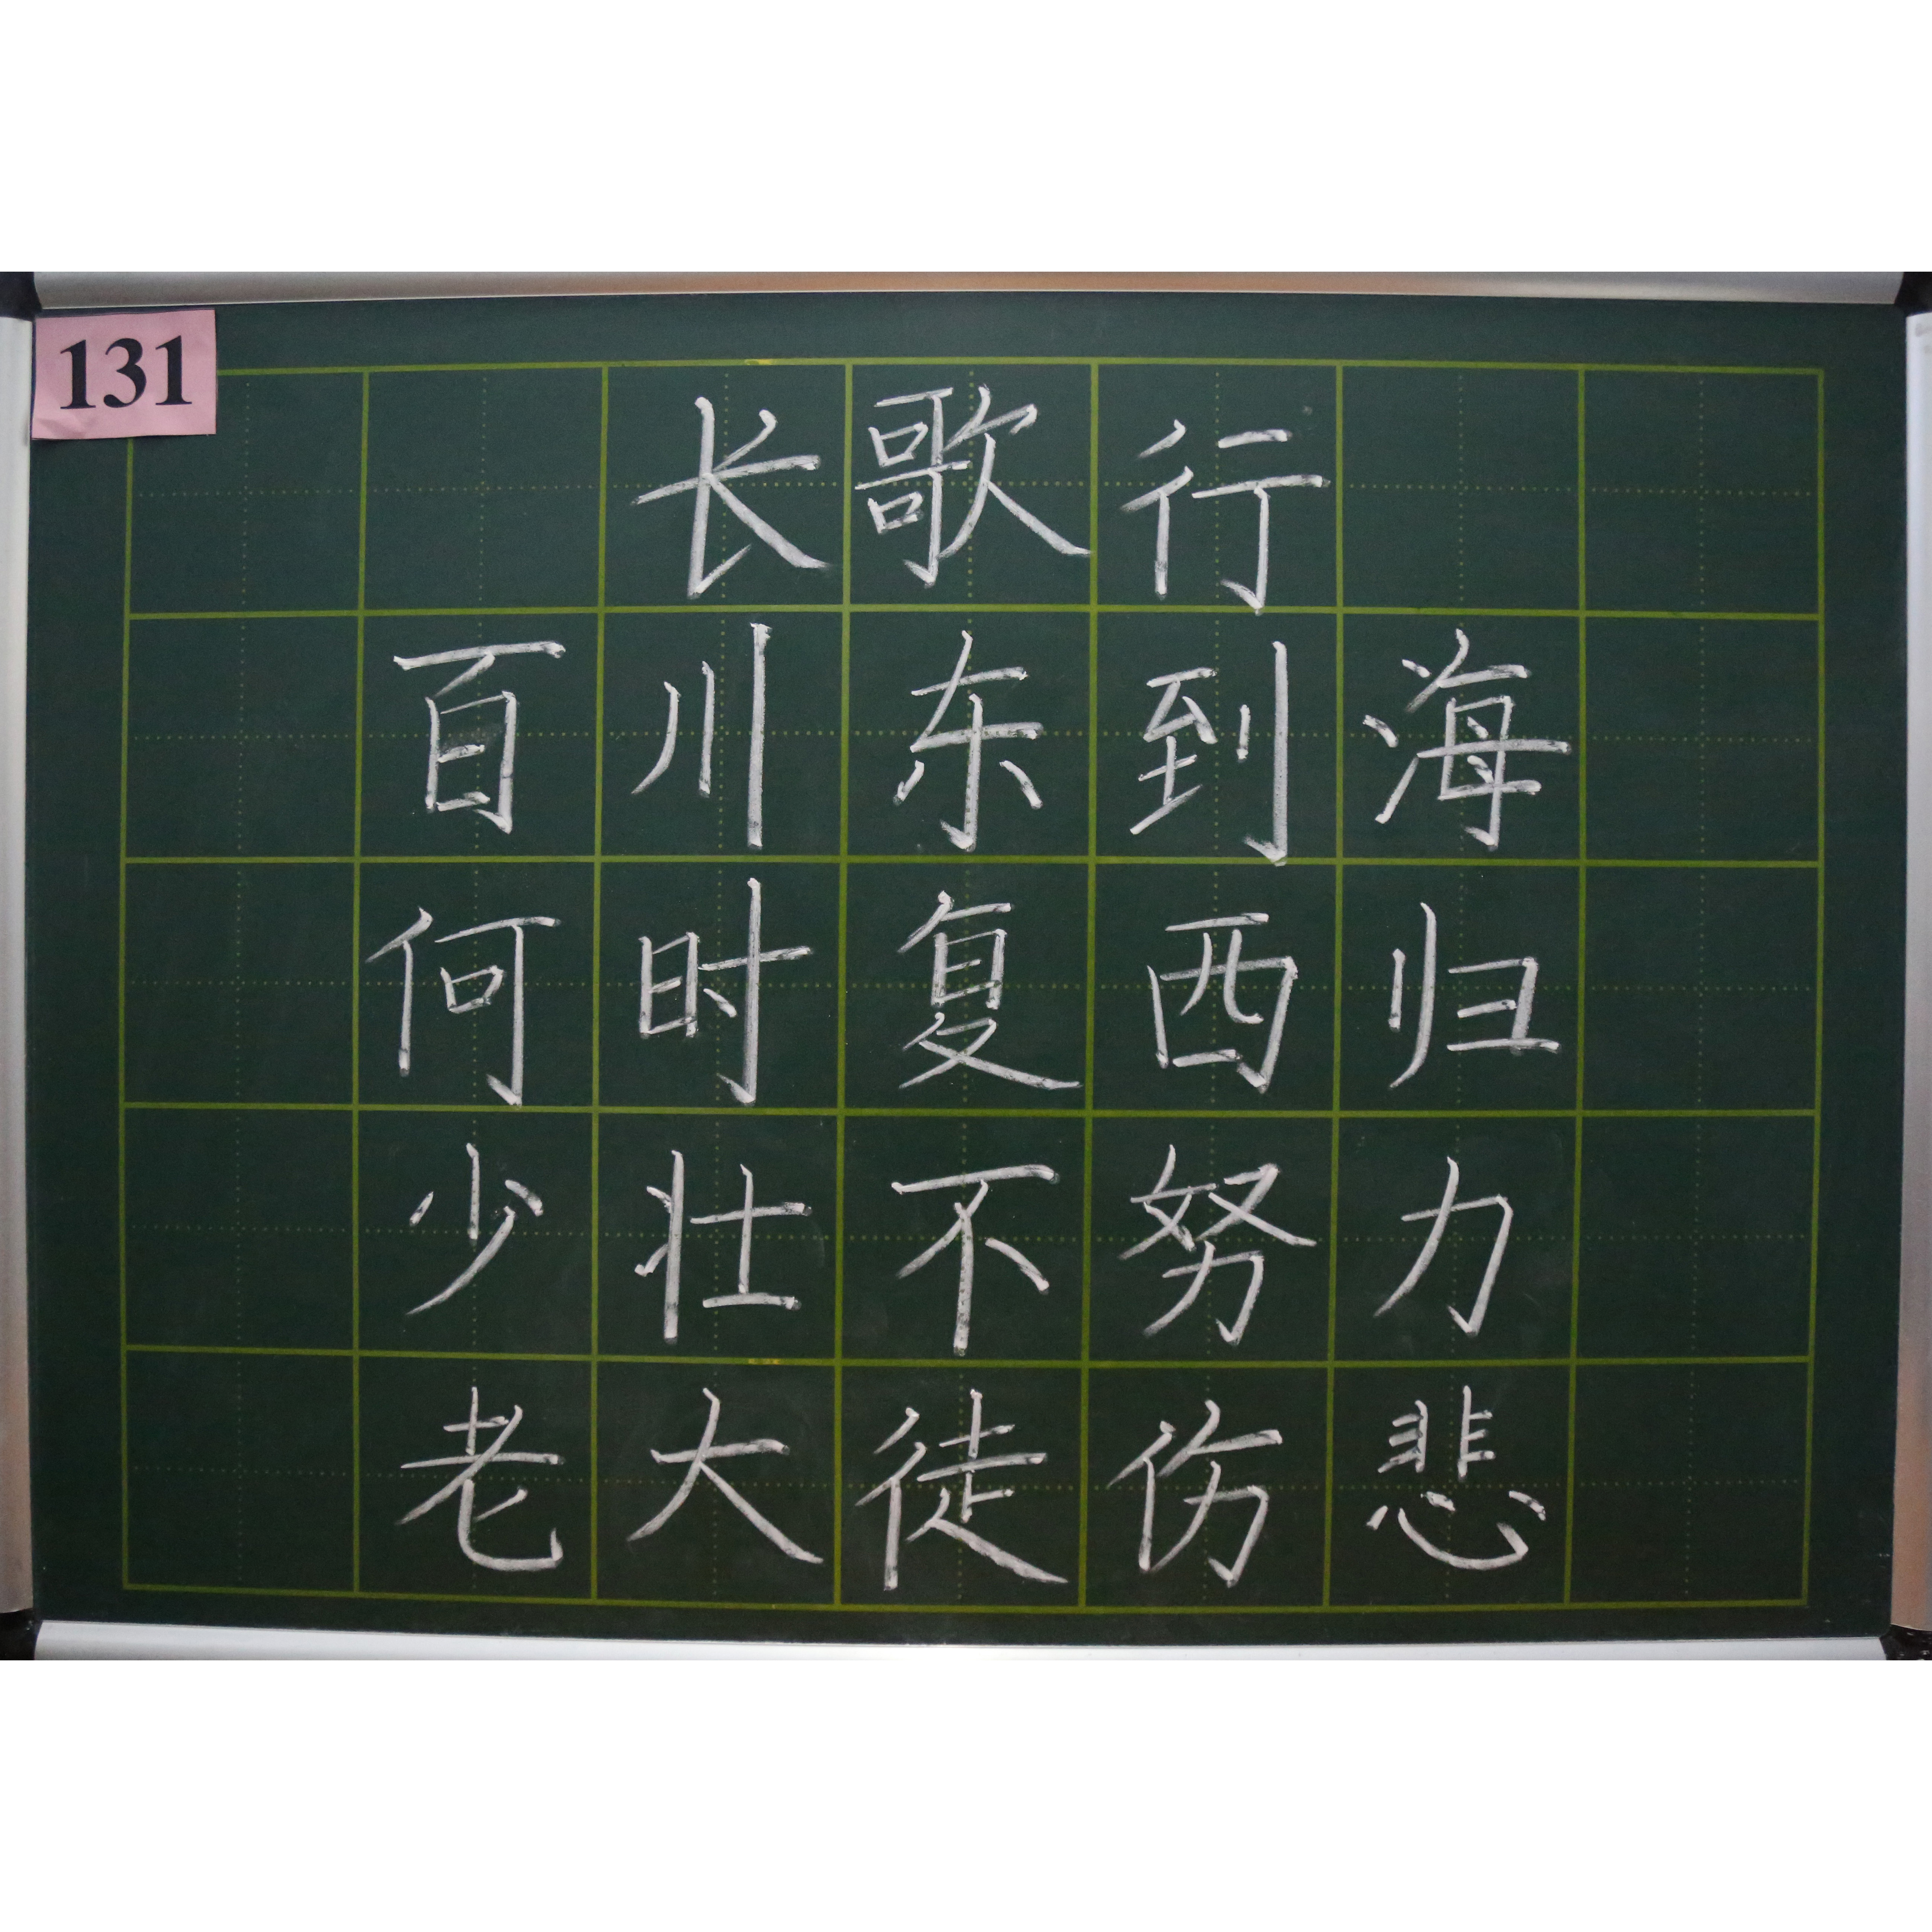 131
长歌行
百川东到海
何时复西归
少壮不努力
老大徒伤悲